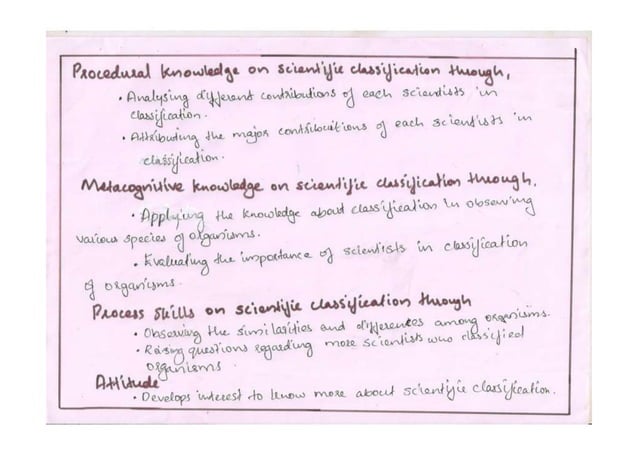 Procedural knowledge on scientific classification through,
• Analysing different contributions of each scientists in
classification.
• Attributing the major contributions of each scientists in
classification.
Metacognitive knowledge on scientific classification through,
• Applying the knowledge about classification in observing
various species of organisms.
• Evaluating the importance of scientists in classification
of organisms.
Process skills on scientific classification through
• Observing the similarities and differences among organisms.
• Raising questions regarding more scientists who classified
organisms.
Attitude
• Develops interest to know more about scientific classification.